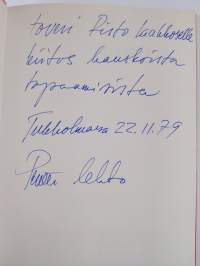 toveri Risto Kaakkoselle
kiitos hauskoista
tapaamisista
Tukholmassa 22.11.79
Pentti Lehto